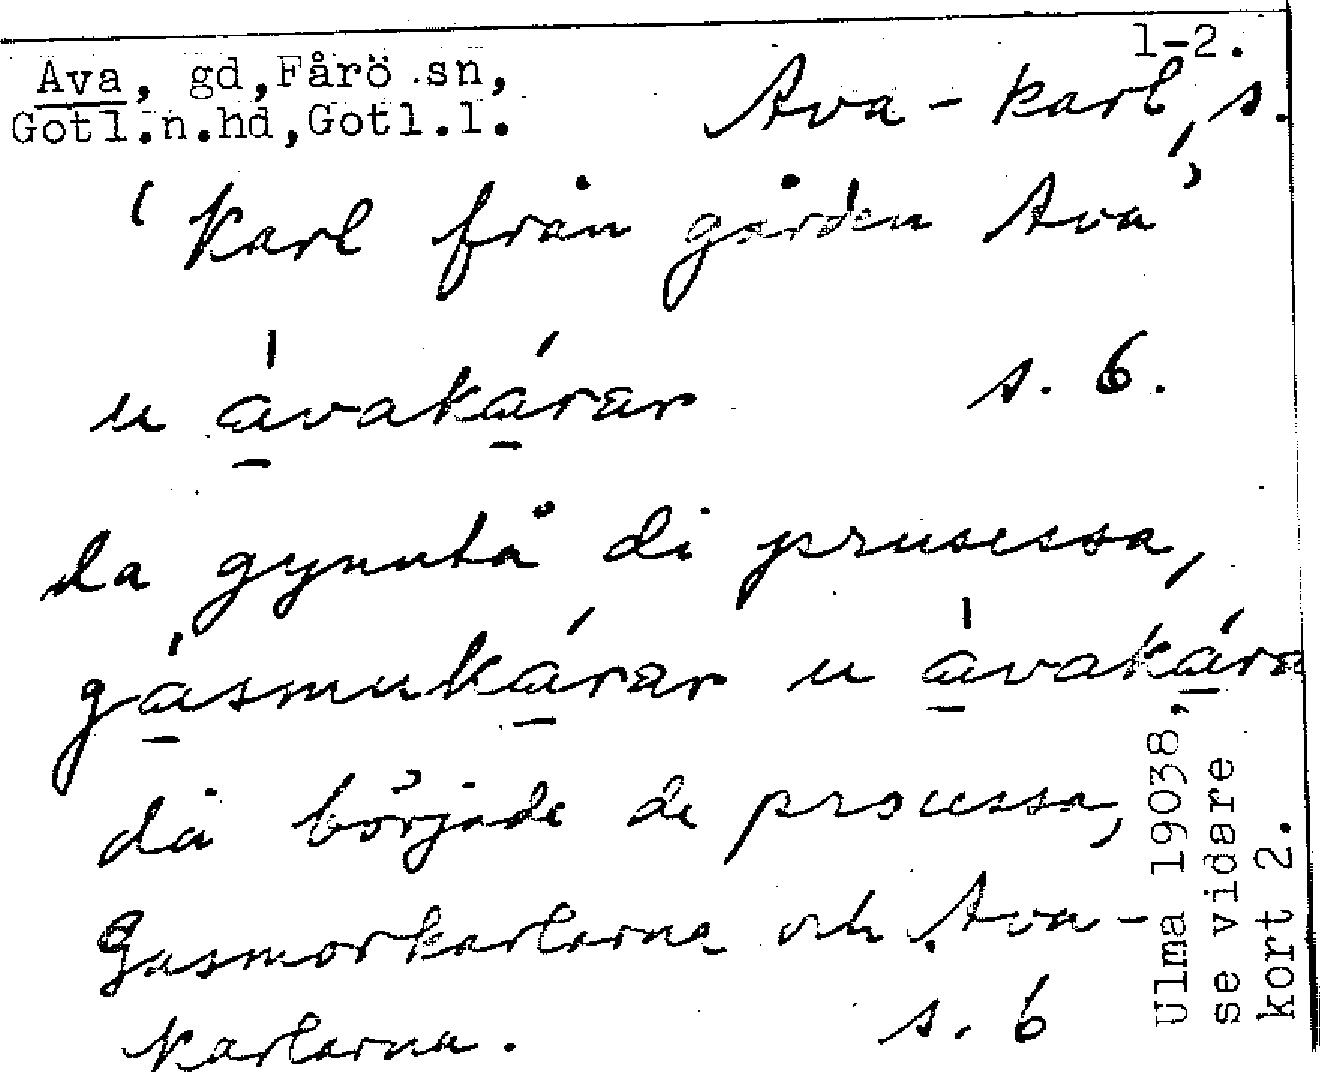 1-2.
Ava, gd,Fårö sn,
Gotl.n.hd,Gotl.l.
Ava-karl, s.
'Karl från gården Ava'
u ávakárar s. 6.
da gynntå di prusessa,
gásmukárar u ávakára
då började de processa,
Gasmorkarlarna och Ava-
karlarna. s. 6
Ulma 19038,
se vidare
kort 2.